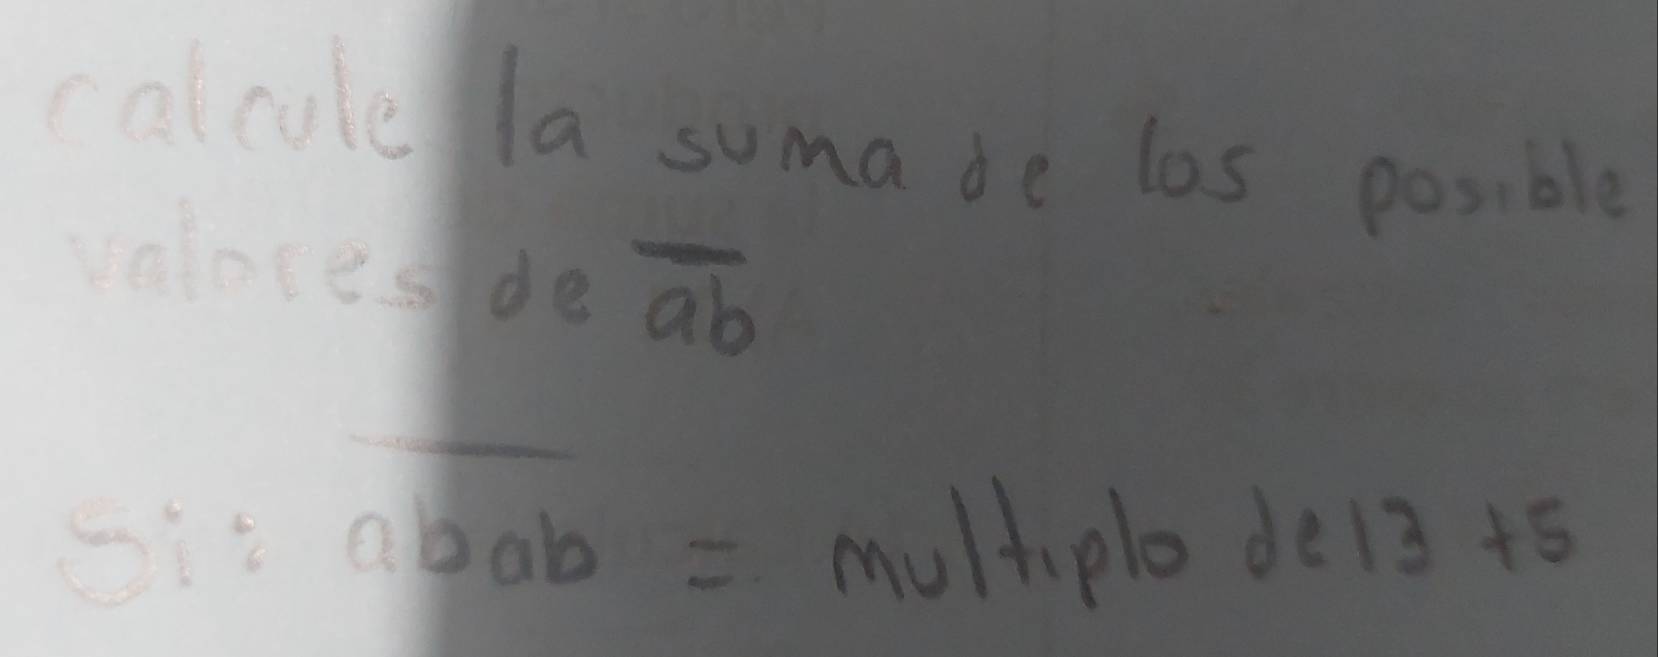 calcule la suma de los posible
valores de ab
Si: abab = multiplo de 13 + 5